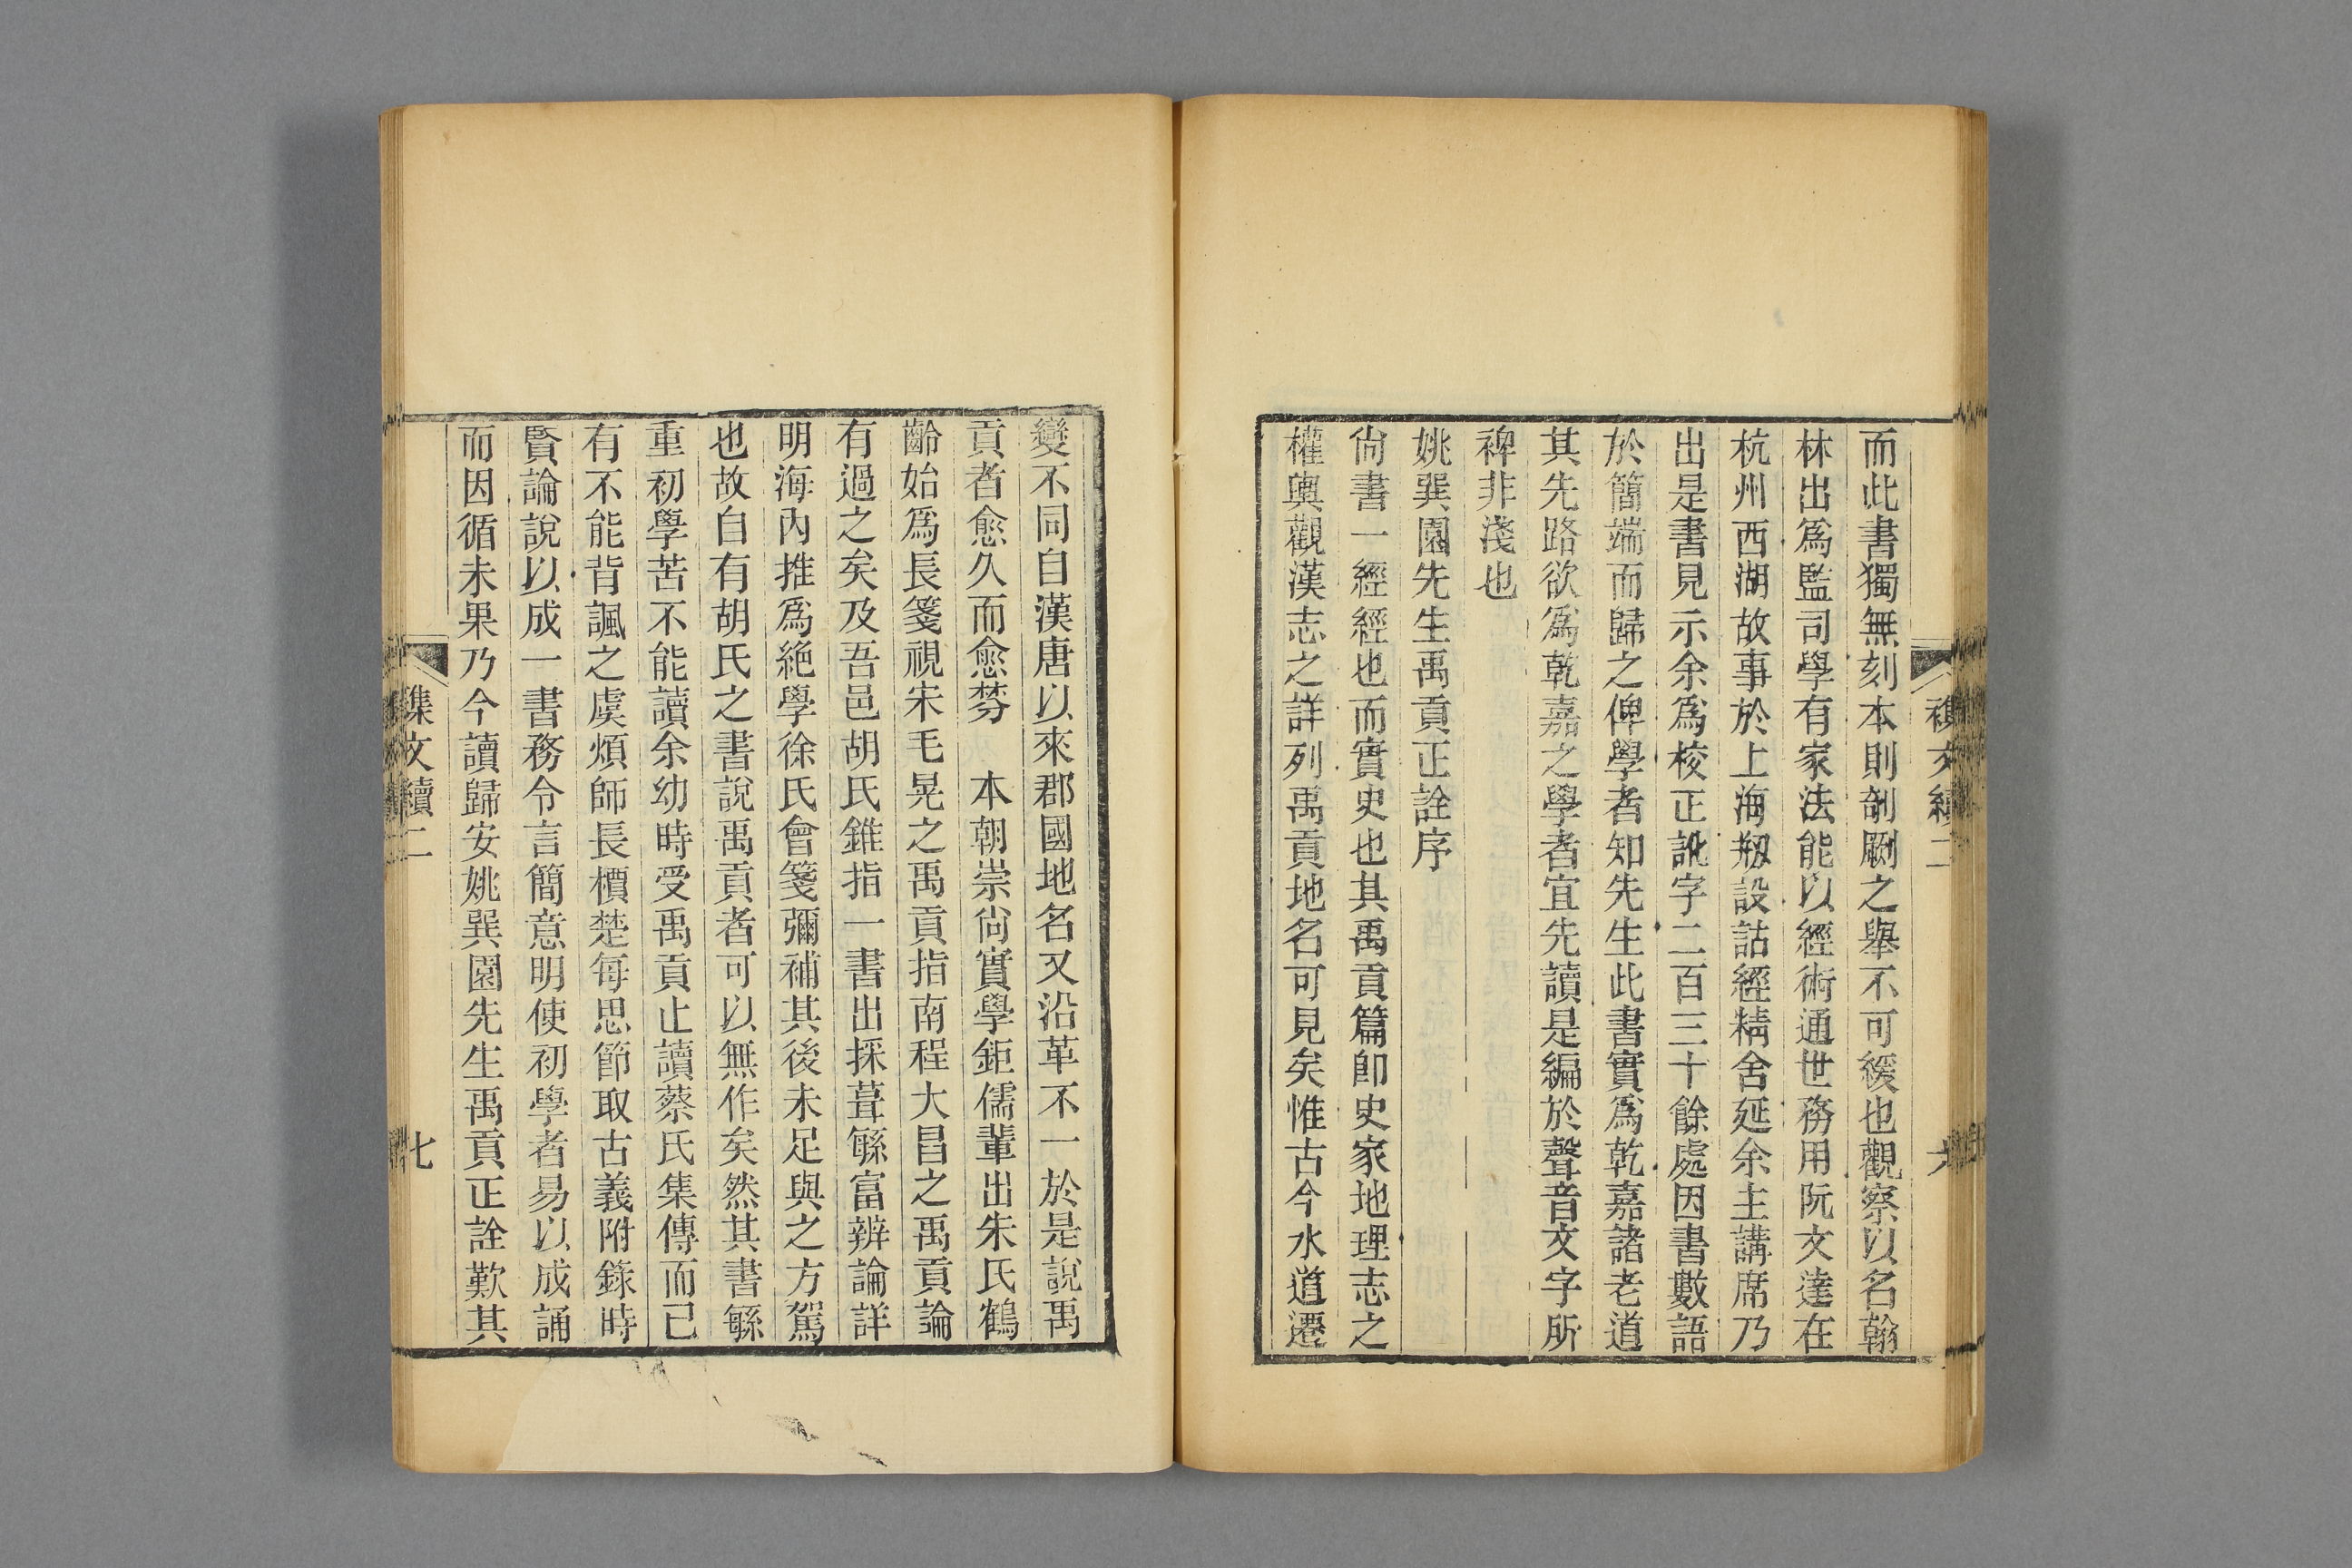 而此書獨無刻本則剞劂之舉不可緩也觀察以名翰
林出爲監司學有家法能以經術通世務用阮文達在
杭州西湖故事於上海剏設詁經精舍延余主講席乃
出是書見示余爲校正訛字二百三十餘處因書數語
於簡端而歸之俾學者知先生此書實爲乾嘉諸老道
其先路欲爲乾嘉之學者宜先讀是編於聲音文字所
裨非淺也
姚巽園先生禹貢正詮序
尙書一經經也而實史也其禹貢篇卽史家地理志之
權輿觀漢志之詳列禹貢地名可見矣惟古今水道遷
襍文續二
六
變不同自漢唐以來郡國地名又沿革不一於是說禹
貢者愈久而愈棼　本朝崇尙實學鉅儒輩出朱氏鶴
齡始爲長箋視宋毛晃之禹貢指南程大昌之禹貢論
有過之矣及吾邑胡氏錐指一書出採葺緐富辨論詳
明海內推爲絶學徐氏會箋彌補其後未足與之方駕
也故自有胡氏之書說禹貢者可以無作矣然其書緐
重初學苦不能讀余幼時受禹貢止讀蔡氏集傳而已
有不能背諷之虞煩師長檟楚每思節取古義附錄時
賢論說以成一書務令言簡意明使初學者易以成誦
而因循未果乃今讀歸安姚巽園先生禹貢正詮歎其
襍文續二
七